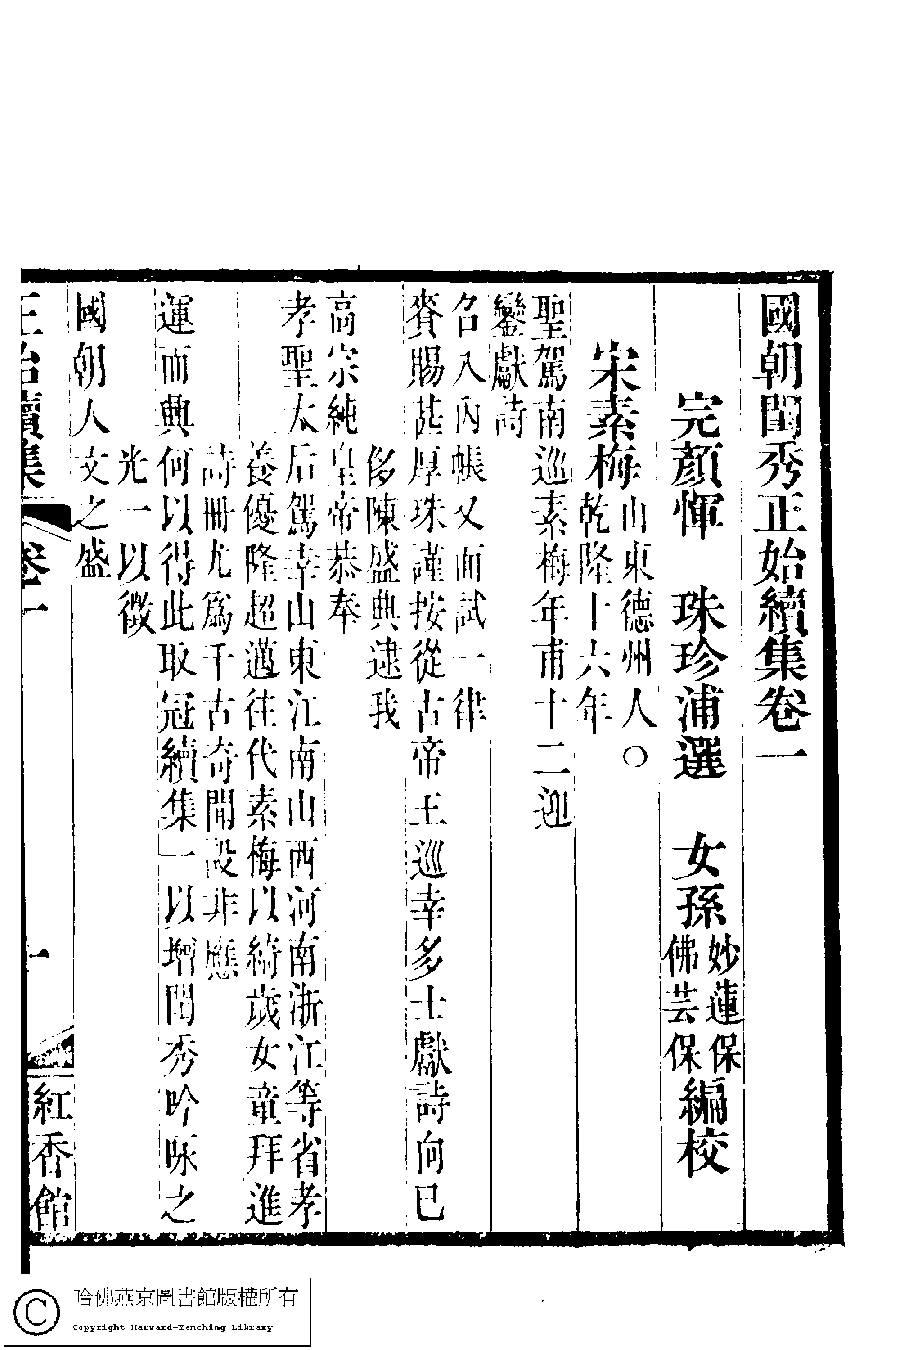 國朝閨秀正始續集卷一
完顏惲 珠珍浦選 女孫妙蓮保佛芸保編校
宋素梅山東德州人○乾隆十六年
聖駕南巡素梅年甫十二迎
鑾獻詩
召入內帳又面試一律
賚賜甚厚珠謹按從古帝王巡幸多士獻詩向已
侈陳盛典逮我
高宗純皇帝恭奉
孝聖太后駕幸山東江南山西河南浙江等省孝
養優隆超邁往代素梅以綺歲女童拜進
詩冊尤爲千古奇聞設非應
運而興何以得此取冠續集一以增閨秀吟咏之
光一以徵
國朝人文之盛
正始續集 卷一 一 紅香館
哈佛燕京圖書館版權所有
Copyright Harvard-Yenching Library